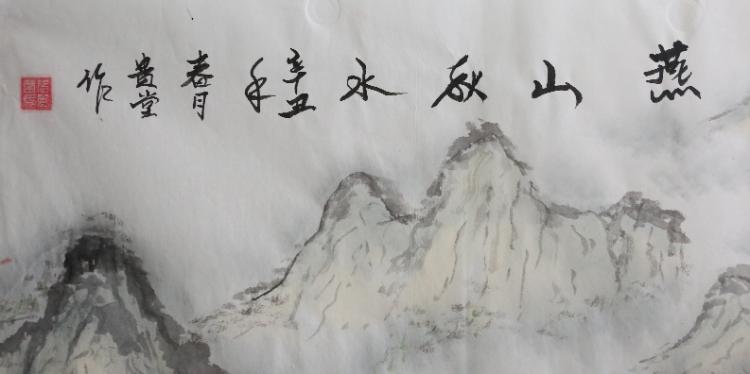 燕山秋水
辛丑年
春月
贵堂
作